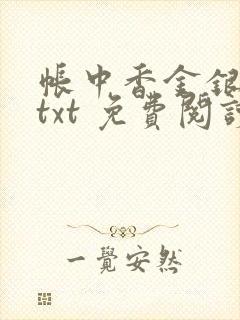 帳中香金銀
txt 免費閱讀
一覺安然